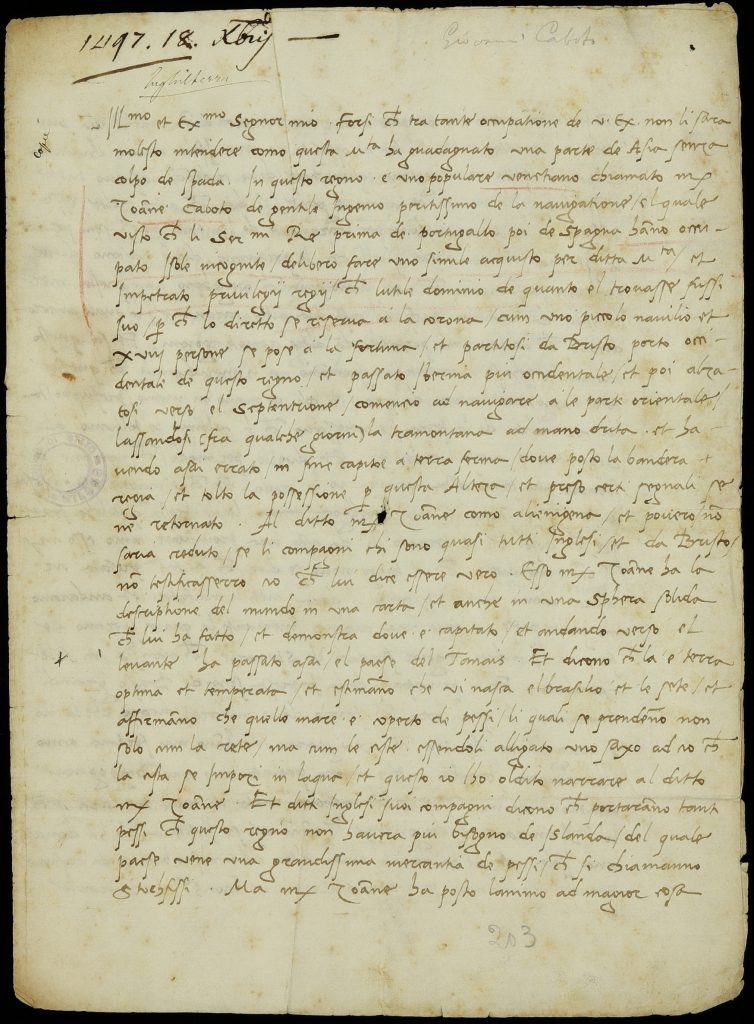 1497. 18. Xbris
Giovanni Caboto
Inghilterra
copia
Illmo et Exmo Segnor mio. Forsi ch̄ tra tante occupatione de v. Ex. non li sara
molesto intendere como questa Mta ha guadagnato una parte de Asia senza
colpo de spada. In questo regno e uno populare venetiano chiamato mr
Zoanne Caboto de gentile Ingenio peritissimo de la navigatione / el quale
visto ch̄ li Sermi Re prima de portugallo poi de Spagna hanno occu-
pato Isole incognite / delibero fare uno simile acquisto per ditta Mta / et
Impetrato privilegii regii / ch̄ lutile dominio de quanto el trovasse fussi
suo / p̄ ch̄ lo diretto se reserva a la corona / cum uno piccolo navilio et
xviii persone se pose a la fortuna / et partitosi da Bristo porto occi-
dentale de questo regno / et passato Ibernia piu occidentale / et poi alza-
tosi verso el Septentrione / comencio ad navigare a le parte orientale /
lassandosi (fra qualche giorni) la tramontana ad mano drita. et ha-
vendo asai errato / in fine capitoe a terra ferma / dove posto la bandera +
regia / et tolto la possessione p̄ questa Alteza / et preso certi segnali se
ne retornato. Al ditto mr Zoanne como alienigena / et povero / nō
saria creduto / se li compagni chi sono quasi tutti Inglesi / et da Bristo /
nō testificasserro io ch̄ lui dice essere vero. Esso mr Zoanne ha la
descriptione del mundo in una carta / et anche in una Sphera solida
ch̄ lui ha fatto / et demonstra dove e capitato / et andando verso el
+ levante ha passato asai / el paese del Tanais. Et dicono ch̄ la e terra
optima et temperata / et estimanno che vi nasca el brasilio et le sete / et
affirmanno che quello mare e coperto de pessi / li quali se prendenno non
solo cum la rete / ma cum le ciste. essendoli alligato uno saxo ad io ch̄
la cista se Impozi in laqua / et questo io lho oldito narrare al ditto
mr Zoanne. Et ditti Inglesi suoi compagni dicono ch̄ portaranno tanti
pessi ch̄ questo regno non havera piu bisogno de Islanda / del quale
paese vene una grandissima mercantia de pessi / ch̄ si chiamanno
Stochfissi. Ma mr Zoanne ha posto lanimo ad magior cosa
203